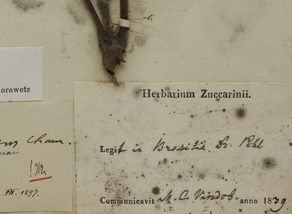 orawetz
Cham.
XII. 1897.
Herbarium Zuccarinii.
Legit in Brasilia Dr. Pohl
Communicavit M. C. Vindob. anno 1839